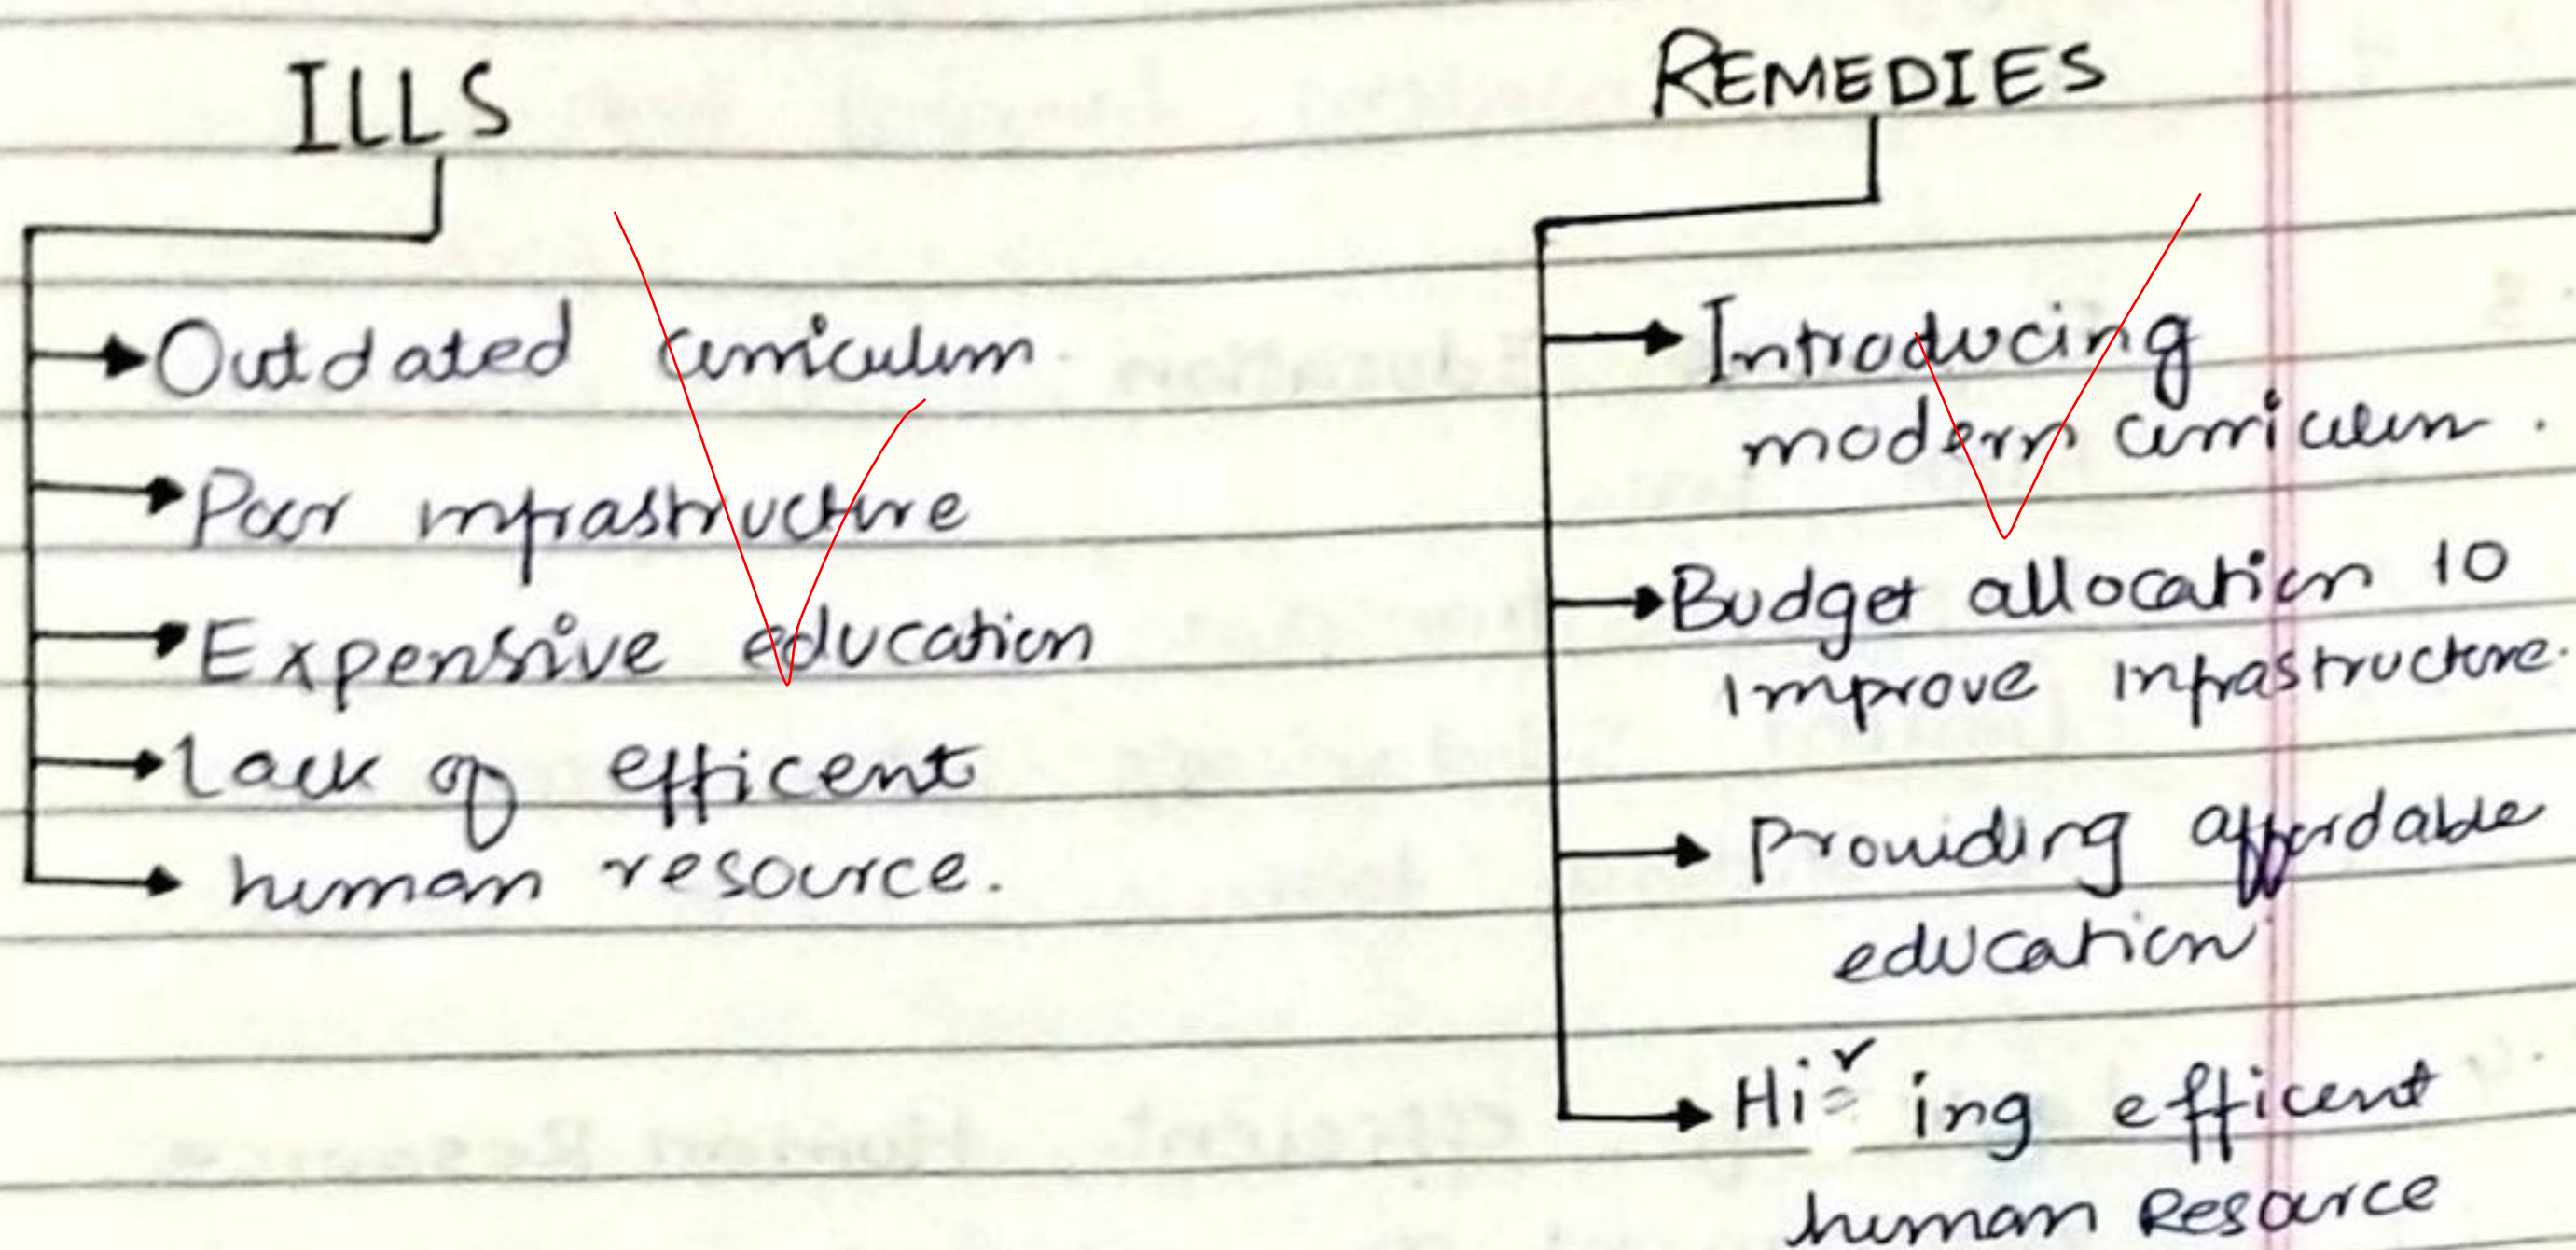 ILLS
Outdated curriculum.
Poor infrastructure
Expensive education
Lack of efficent
human resource.
REMEDIES
Introducing
modern curriculum.
Budget allocation to
improve infrastructure.
Providing affordable
education
Hiring efficent
human Resource